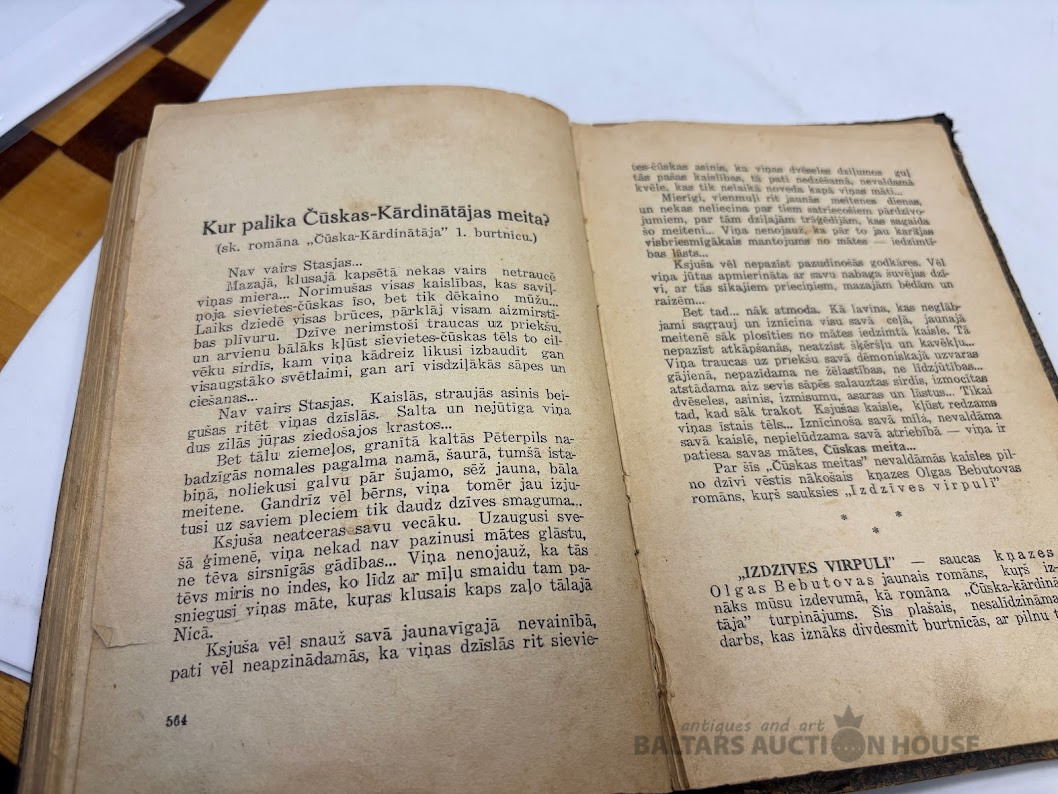 Kur palika Čūskas-Kārdinātājas meita?
(sk. romāna „Čūska-Kārdinātāja" 1. burtnīcu.)
Nav vairs Stasjas...
Mazajā, klusajā kapsētā nekas vairs netraucē
viņas miera... Norimušas visas kaislības, kas saviļ-
ņoja sievietes-čūskas īso, bet tik dēkaino mūžu...
Laiks dziedē visas brūces, pārklāj visam aizmirstī-
bas plīvuru. Dzīve nerimstoši traucas uz priekšu,
un arvienu bālāks kļūst sievietes-čūskas tēls to cil-
vēku sirdīs, kam viņa kādreiz likusi izbaudīt gan
visaugstāko svētlaimi, gan arī visdziļākās sāpes un
ciešanas...
Nav vairs Stasjas. Kaislās, straujās asinis bei-
gušas ritēt viņas dzīslās. Salta un nejūtīga viņa
dus zilās jūras ziedošajos krastos...
Bet tālu ziemeļos, granītā kaltās Pēterpils na-
badzīgās nomales pagalma namā, šaurā, tumšā ista-
biņā, noliekusi galvu pār šujamo, sēž jauna, bāla
meitene. Gandrīz vēl bērns, viņa tomēr jau izju-
tusi uz saviem pleciem tik daudz dzīves smaguma...
Ksjuša neatceras savu vecāku. Uzaugusi sve-
šā ģimenē, viņa nekad nav pazinusi mātes glāstu,
ne tēva sirsnīgās gādības... Viņa nenojauž, ka tās
tēvs miris no indes, ko līdz ar mīļu smaidu tam pa-
sniegusi viņas māte, kuŗas klusais kaps zaļo tālajā
Nicā.
Ksjuša vēl snauž savā jaunavīgajā nevainībā,
pati vēl neapzinādamās, ka viņas dzīslās rit sievie-
564
tes-čūskas asinis, ka viņas dvēseles dziļumos guļ
tās pašas kaislības, tā pati nedzēšamā, nevaldamā
kvēle, kas tik nelaikā noveda kapā viņas māti...
Mierīgi, vienmuļi rit jaunās meitenes dienas,
un nekas neliecina par tiem satriecošiem pārdzīvo-
jumiem, par tām dziļajām traģēdijām, kas sagaida
šo meiteni... Viņa nenojauž, ka pār to jau karājas
visbriesmīgākais mantojums no mātes — iedzimtī-
bas lāsts...
Ksjuša vēl nepazīst pazudinošās godkāres. Vēl
viņa jūtas apmierināta ar savu nabaga šuvējas dzī-
vi, ar tās sīkajiem prieciņiem, mazajām bēdām un
raizēm...
Bet tad... nāk atmoda. Kā lavīna, kas neglāb-
jami sagrauj un iznīcina visu savā ceļā, jaunajā
meitenē sāk plosīties no mātes iedzimtā kaisle. Tā
nepazīst atkāpšanās, neatzīst šķēršļu un kavēkļu...
Viņa traucas uz priekšu savā dēmoniskajā uzvaras
gājienā, nepazīdama ne žēlastības, ne līdzjūtības...
atstādama aiz sevis sāpēs salauztas sirdis, izmocītas
dvēseles, asinis, izmisumu, asaras un lāstus... Tikai
tad, kad sāk trakot Ksjušas kaisle, kļūst redzams
viņas īstais tēls... Iznīcinoša savā mīlā, nevaldāma
savā kaislē, nepielūdzama savā atriebībā — viņa ir
patiesa savas mātes, Čūskas meita...
Par šīs „Čūskas meitas" nevaldāmās kaisles pil-
no dzīvi vēstīs nākošais kņazes Olgas Bebutovas
romāns, kuŗš sauksies „Izdzīves virpulī"
* *
*
„IZDZIVES VIRPULI" — saucas kņazes
Olgas Bebutovas jaunais romāns, kuŗš iz-
nāks mūsu izdevumā, kā romāna „Čūska-kārdinā-
tāja" turpinājums. Šis plašais, nesalīdzināma
darbs, kas iznāks divdesmit burtnīcās, ar pilnu t
antiques and art
BALTARS AUCTION HOUSE